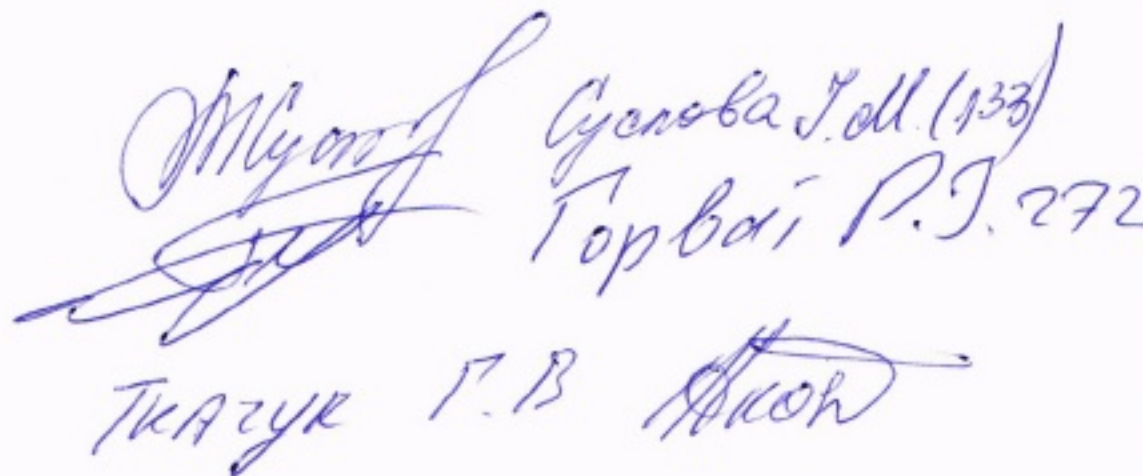 Суслова І.М. (133)
Горваі Р.І. 272
Ткачук Г.В